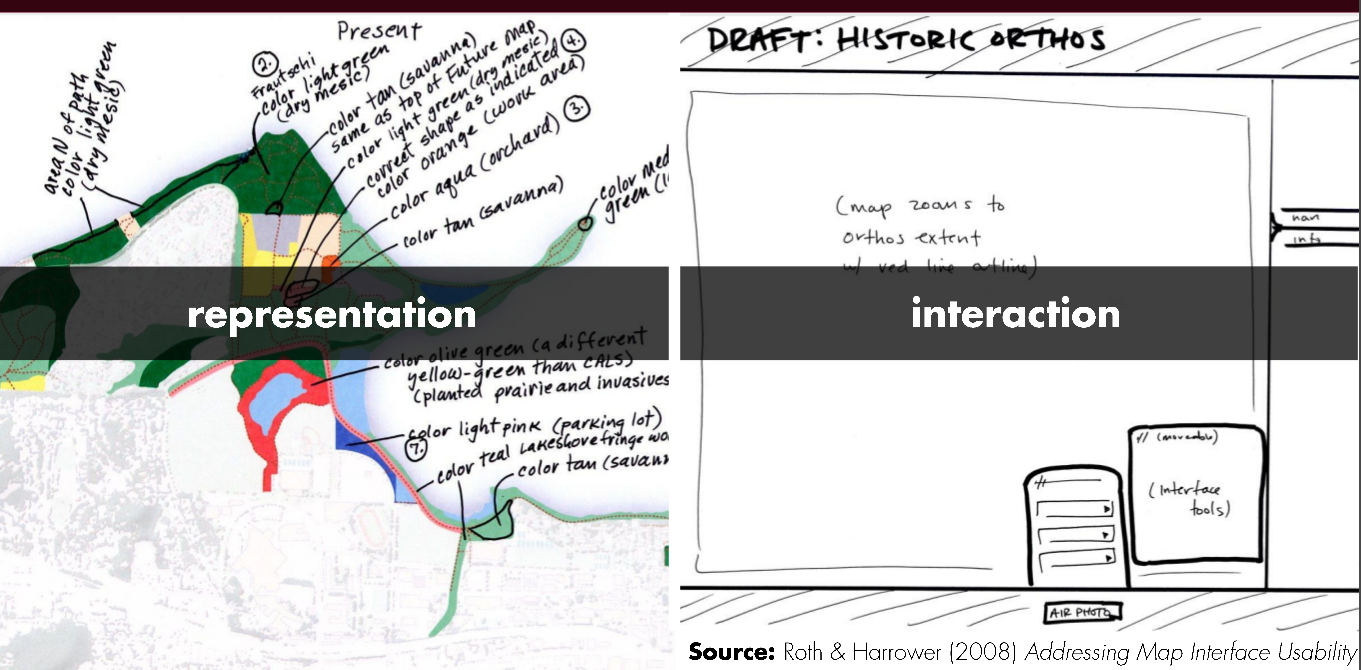 Present
area N of path
color light green
(dry mesic)
2.
Frautschi
color light green
(dry mesic)
color tan (savanna)
same as top of Future map
color light green (dry mesic) 4.
correct shape as indicated
color orange (work area)
color aqua (orchard) 3.
color tan (savanna)
color med
green
representation
color olive green (a different
yellow-green than CALS)
(planted prairie and invasives
color light pink (parking lot)
7.
color teal Lakeshore fringe wo
color tan (savann
DRAFT: HISTORIC ORTHOS
(map zooms to
orthos extent
w/ red line outline)
nav
info
interaction
// (moveable)
(Interface
tools)
AIR PHOTO
Source: Roth & Harrower (2008) Addressing Map Interface Usability